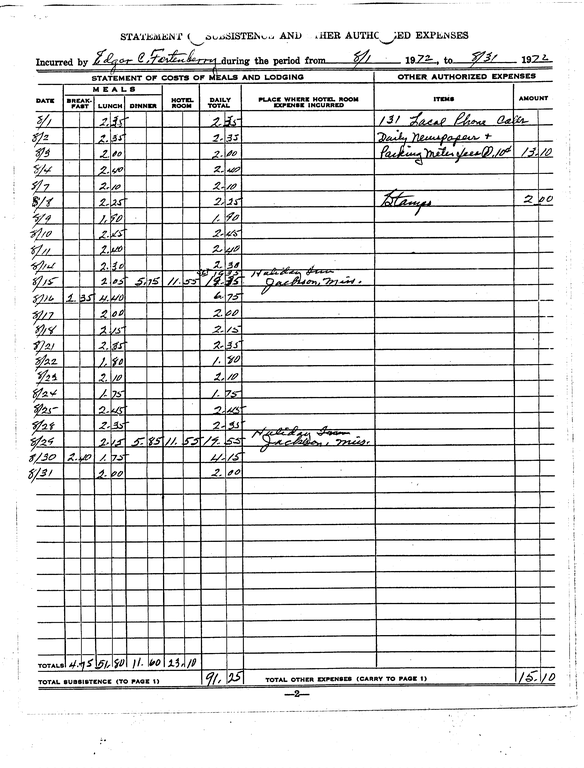 STATEMENT SUBSISTENCE AND OTHER AUTHORIZED EXPENSES
Incurred by Edgar C. Fortenberry during the period from 8/1 1972, to 8/31 1972
STATEMENT OF COSTS OF MEALS AND LODGING OTHER AUTHORIZED EXPENSES
MEALS
DATE BREAKFAST LUNCH DINNER HOTEL ROOM DAILY TOTAL PLACE WHERE HOTEL ROOM EXPENSE INCURRED ITEMS AMOUNT
8/1 2.35 2.35 131 Local Phone Calls
8/2 2.35 2.35 Daily Newspaper +
8/3 2.00 2.00 Parking meter fees @ .10¢ 13.10
8/4 2.40 2.40
8/7 2.10 2.10
8/8 2.25 2.25 Stamps 2 00
8/9 1.90 1.90
8/10 2.45 2.45
8/11 2.40 2.40
8/14 2.30 2.30
8/15 2.05 5.75 11.55 19.35 Holiday Inn Jackson, Miss.
8/16 2.35 4.40 6.75
8/17 2.00 2.00
8/18 2.15 2.15
8/21 2.35 2.35
8/22 1.80 1.80
8/23 2.10 2.10
8/24 1.75 1.75
8/25 2.45 2.45
8/28 2.35 2.35
8/29 2.15 5.85 11.55 19.55 Holiday Inn Jackson, Miss.
8/30 2.40 1.75 4.15
8/31 2.00 2.00
TOTALS 4.75 51.80 11.60 23.10
TOTAL SUBSISTENCE (TO PAGE 1) 91.25 TOTAL OTHER EXPENSES (CARRY TO PAGE 1) 15.10
—2—